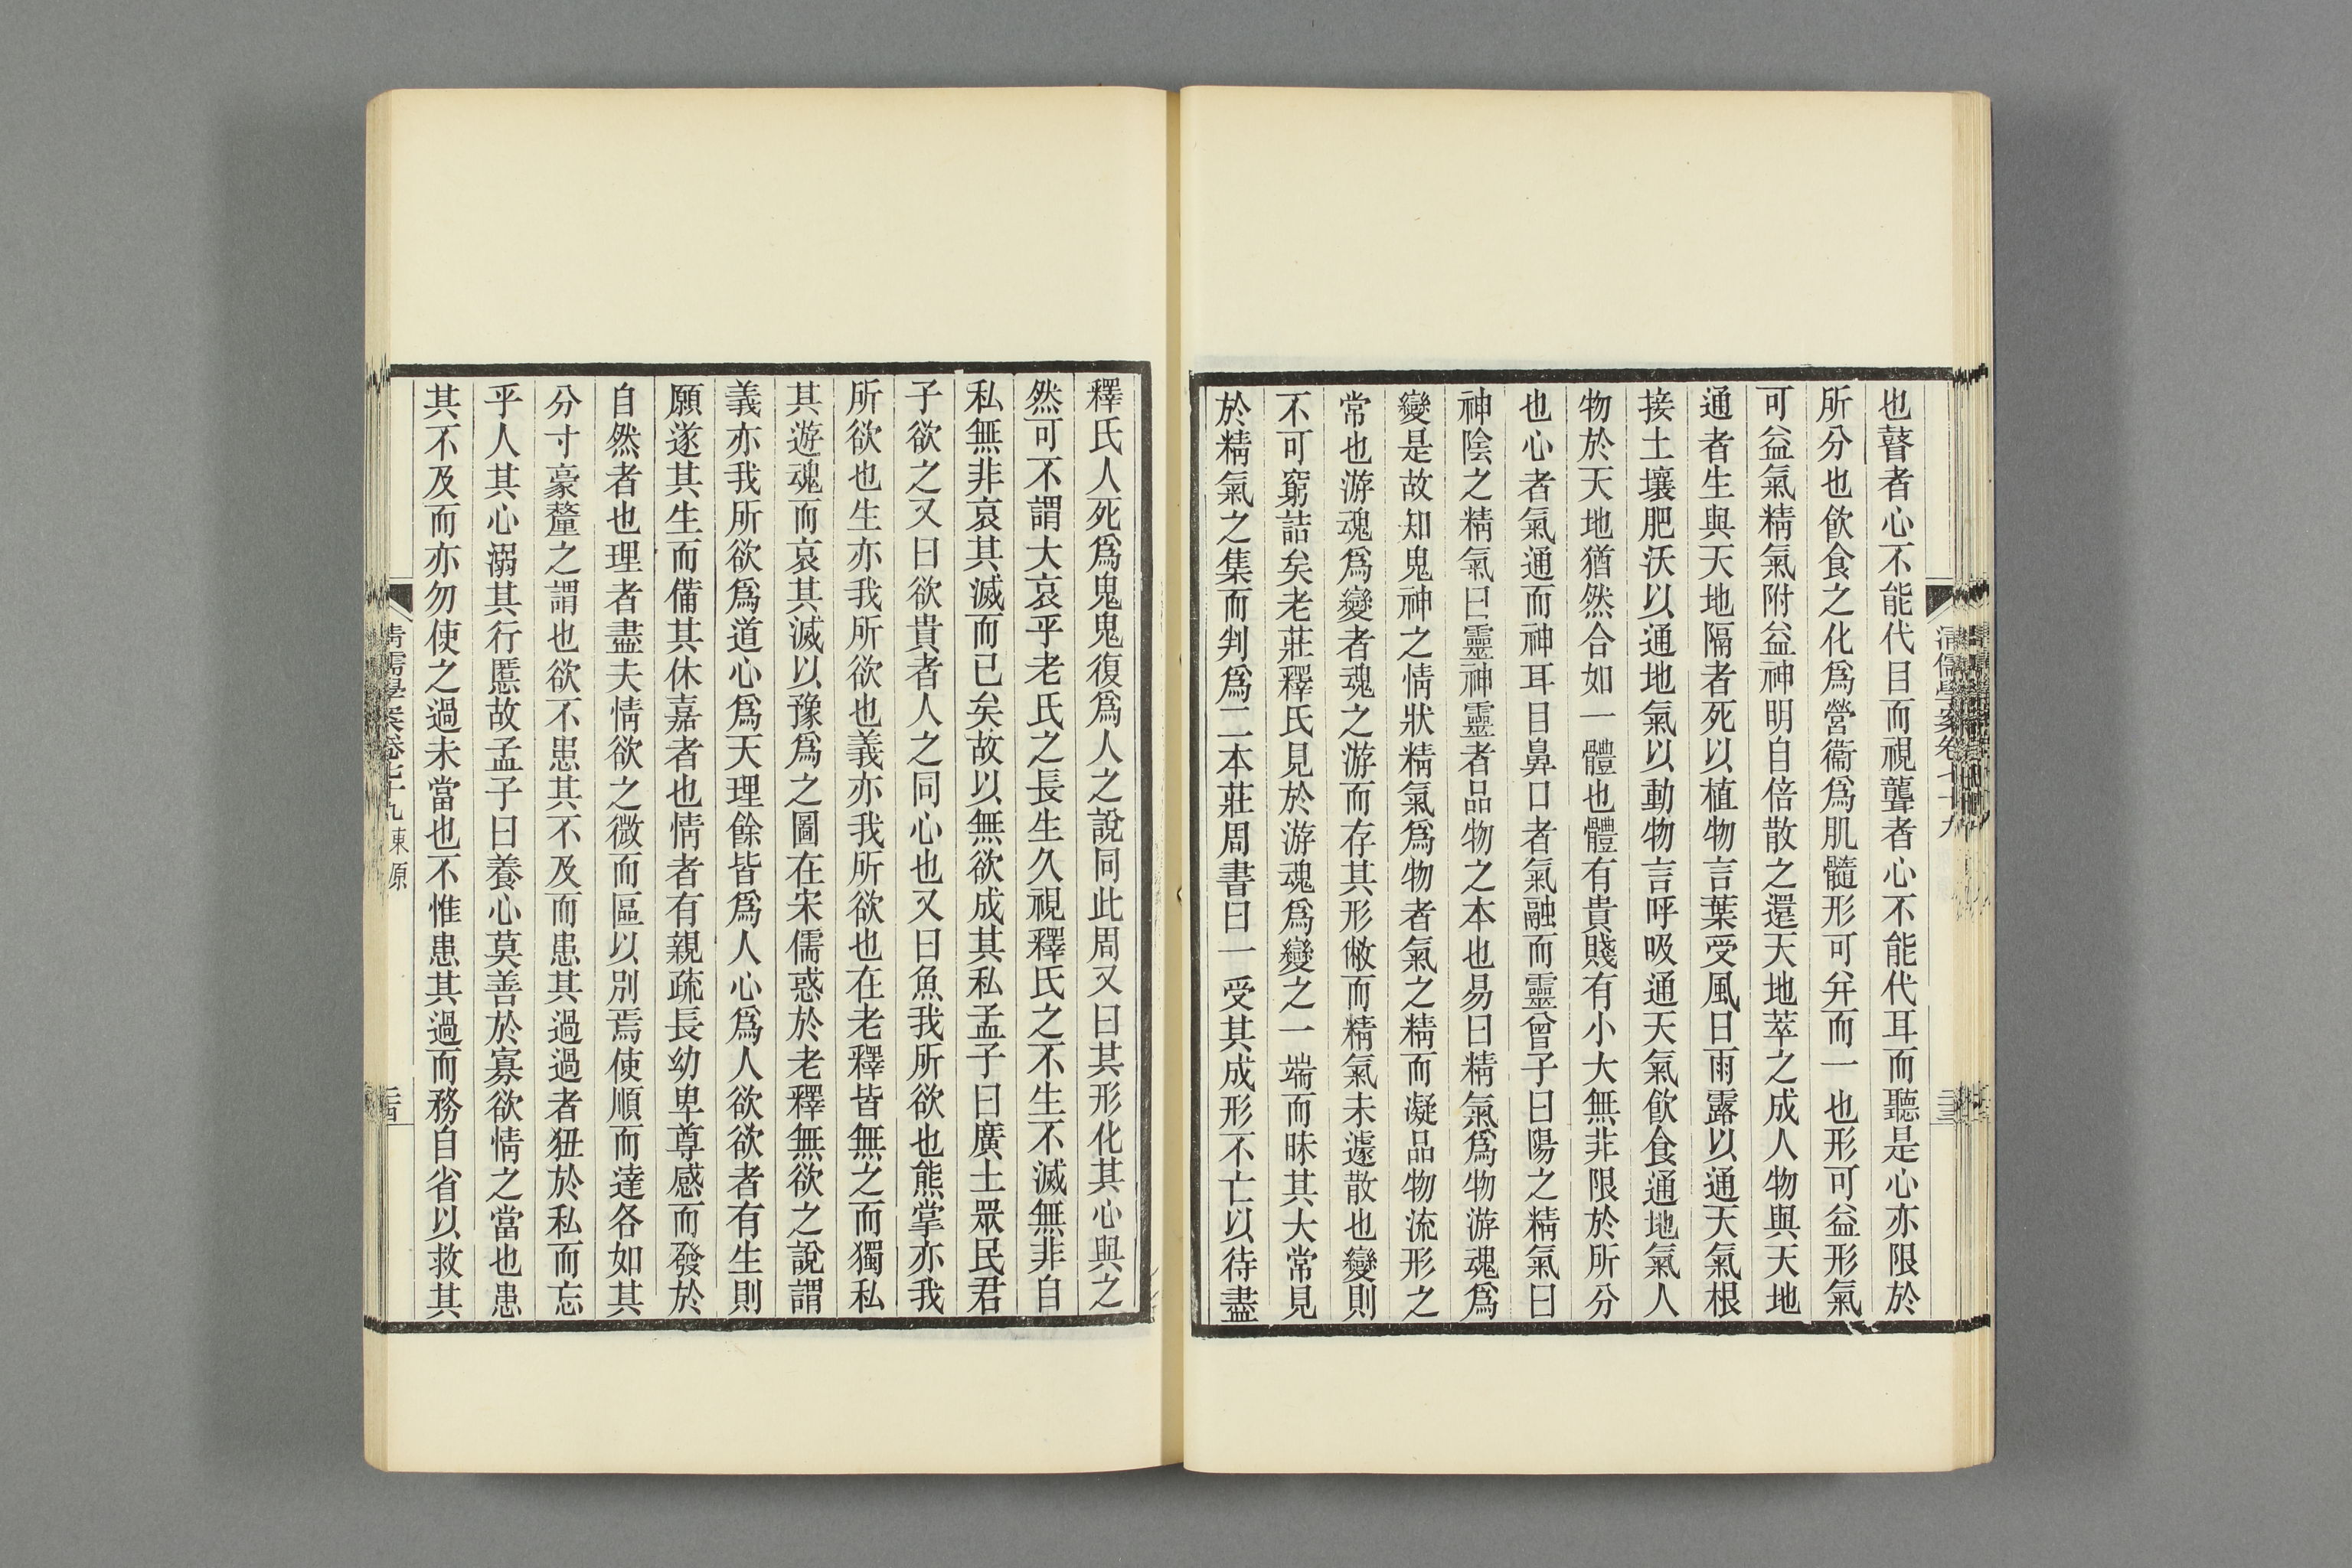 清儒學案卷七十九
二十三
也瞽者心不能代目而視聾者心不能代耳而聽是心亦限於
所分也飮食之化爲營衞爲肌髓形可幷而一也形可益形氣
可益氣精氣附益神明自倍散之還天地萃之成人物與天地
通者生與天地隔者死以植物言葉受風日雨露以通天氣根
接土壤肥沃以通地氣以動物言呼吸通天氣飮食通地氣人
物於天地猶然合如一體也體有貴賤有小大無非限於所分
也心者氣通而神耳目鼻口者氣融而靈曾子曰陽之精氣曰
神陰之精氣曰靈神靈者品物之本也易曰精氣爲物游魂爲
變是故知鬼神之情狀精氣爲物者氣之精而凝品物流形之
常也游魂爲變者魂之游而存其形敝而精氣未遽散也變則
不可窮詰矣老莊釋氏見於游魂爲變之一端而昧其大常見
於精氣之集而判爲二本莊周書曰一受其成形不亡以待盡
釋氏人死爲鬼鬼復爲人之說同此周又曰其形化其心與之
然可不謂大哀乎老氏之長生久視釋氏之不生不滅無非自
私無非哀其滅而已矣故以無欲成其私孟子曰廣土眾民君
子欲之又曰欲貴者人之同心也又曰魚我所欲也熊掌亦我
所欲也生亦我所欲也義亦我所欲也在老釋皆無之而獨私
其遊魂而哀其滅以豫爲之圖在宋儒惑於老釋無欲之說謂
義亦我所欲爲道心爲天理餘皆爲人心爲人欲欲者有生則
願遂其生而備其休嘉者也情者有親疏長幼卑尊感而發於
自然者也理者盡夫情欲之微而區以別焉使順而達各如其
分寸豪釐之謂也欲不患其不及而患其過過者狃於私而忘
乎人其心溺其行慝故孟子曰養心莫善於寡欲情之當也患
其不及而亦勿使之過未當也不惟患其過而務自省以救其
清儒學案卷七十九 東原
二十四